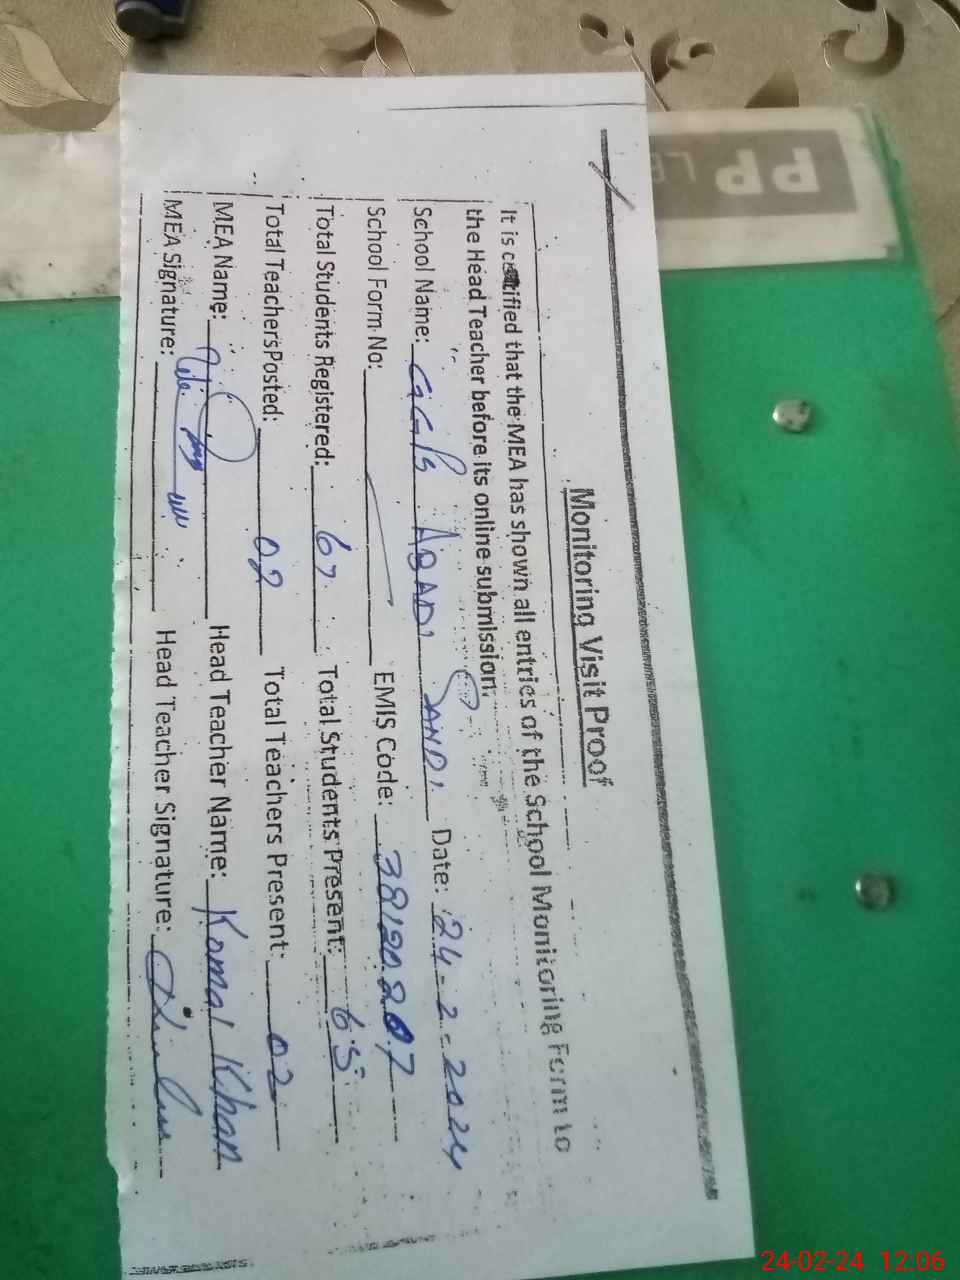 PP
Monitoring Visit Proof
It is certified that the MEA has shown all entries of the School Monitoring Form to
the Head Teacher before its online submission.
School Name: GGPS ABADI SANDI Date: 24-2-2024
School Form No: EMIS Code: 38120207
Total Students Registered: 67 Total Students Present: 65
Total Teachers Posted: 02 Total Teachers Present: 02
MEA Name: Head Teacher Name: Komal Khan
MEA Signature: Head Teacher Signature:
24-02-24 12:06